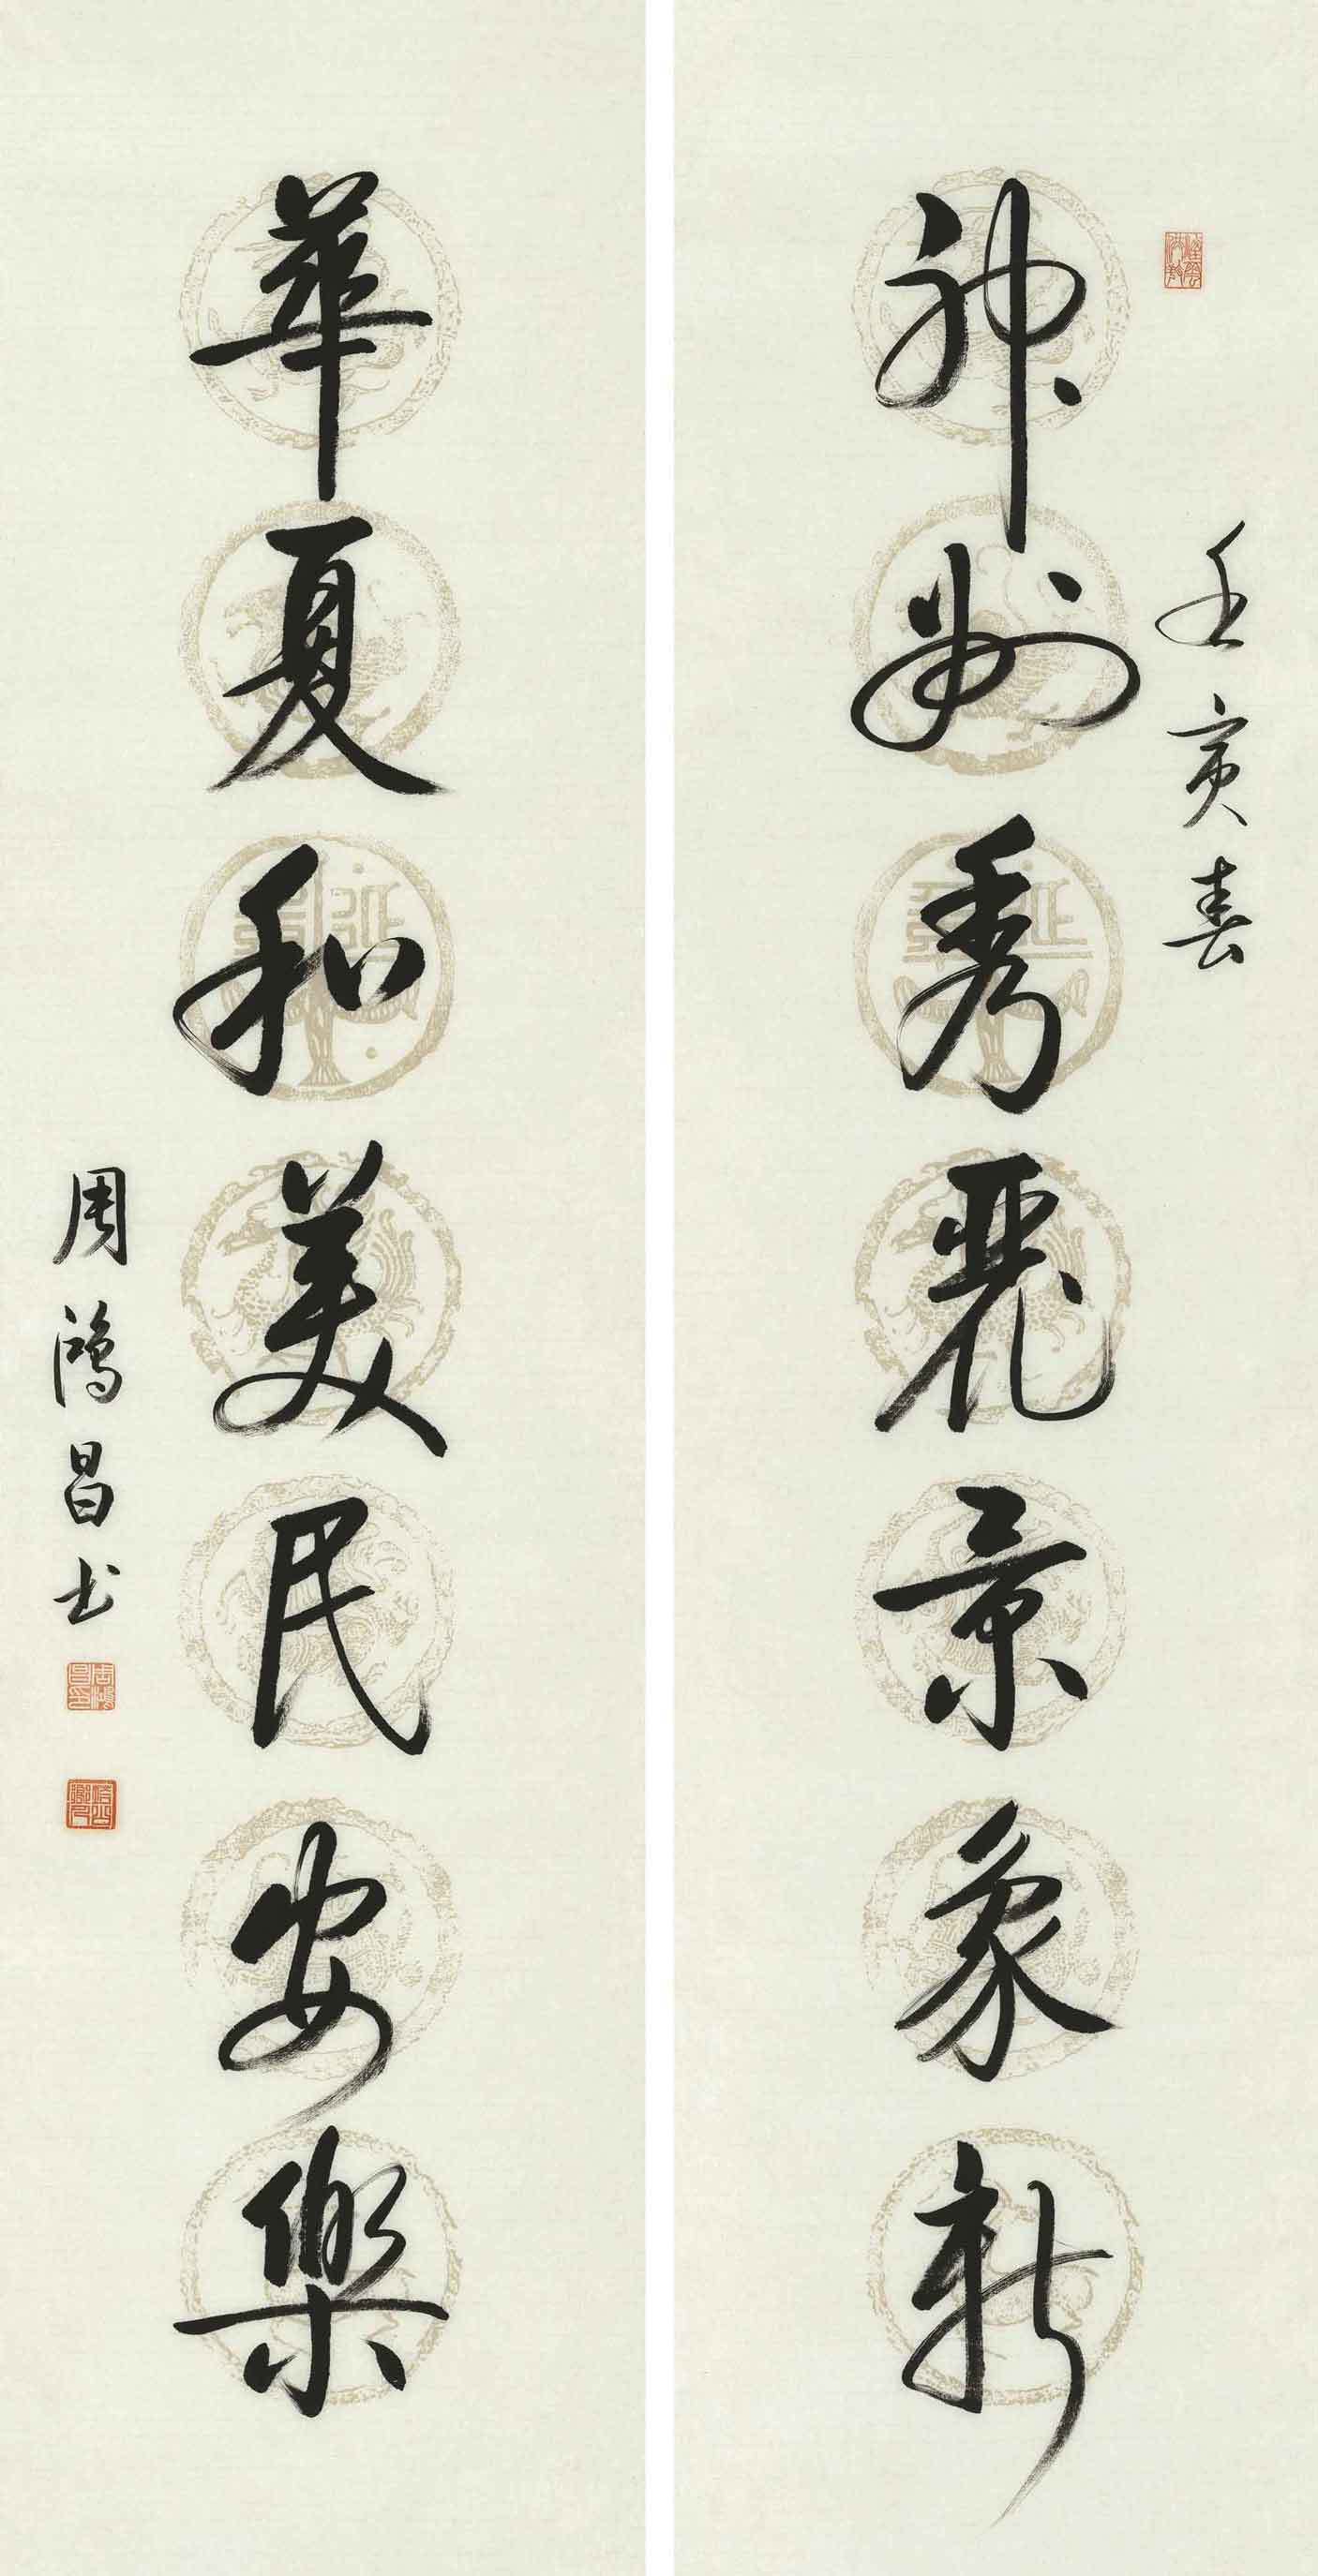 壬寅春
神州秀麗景象新
華夏和美民安樂
周鴻昌书
周鴻昌印